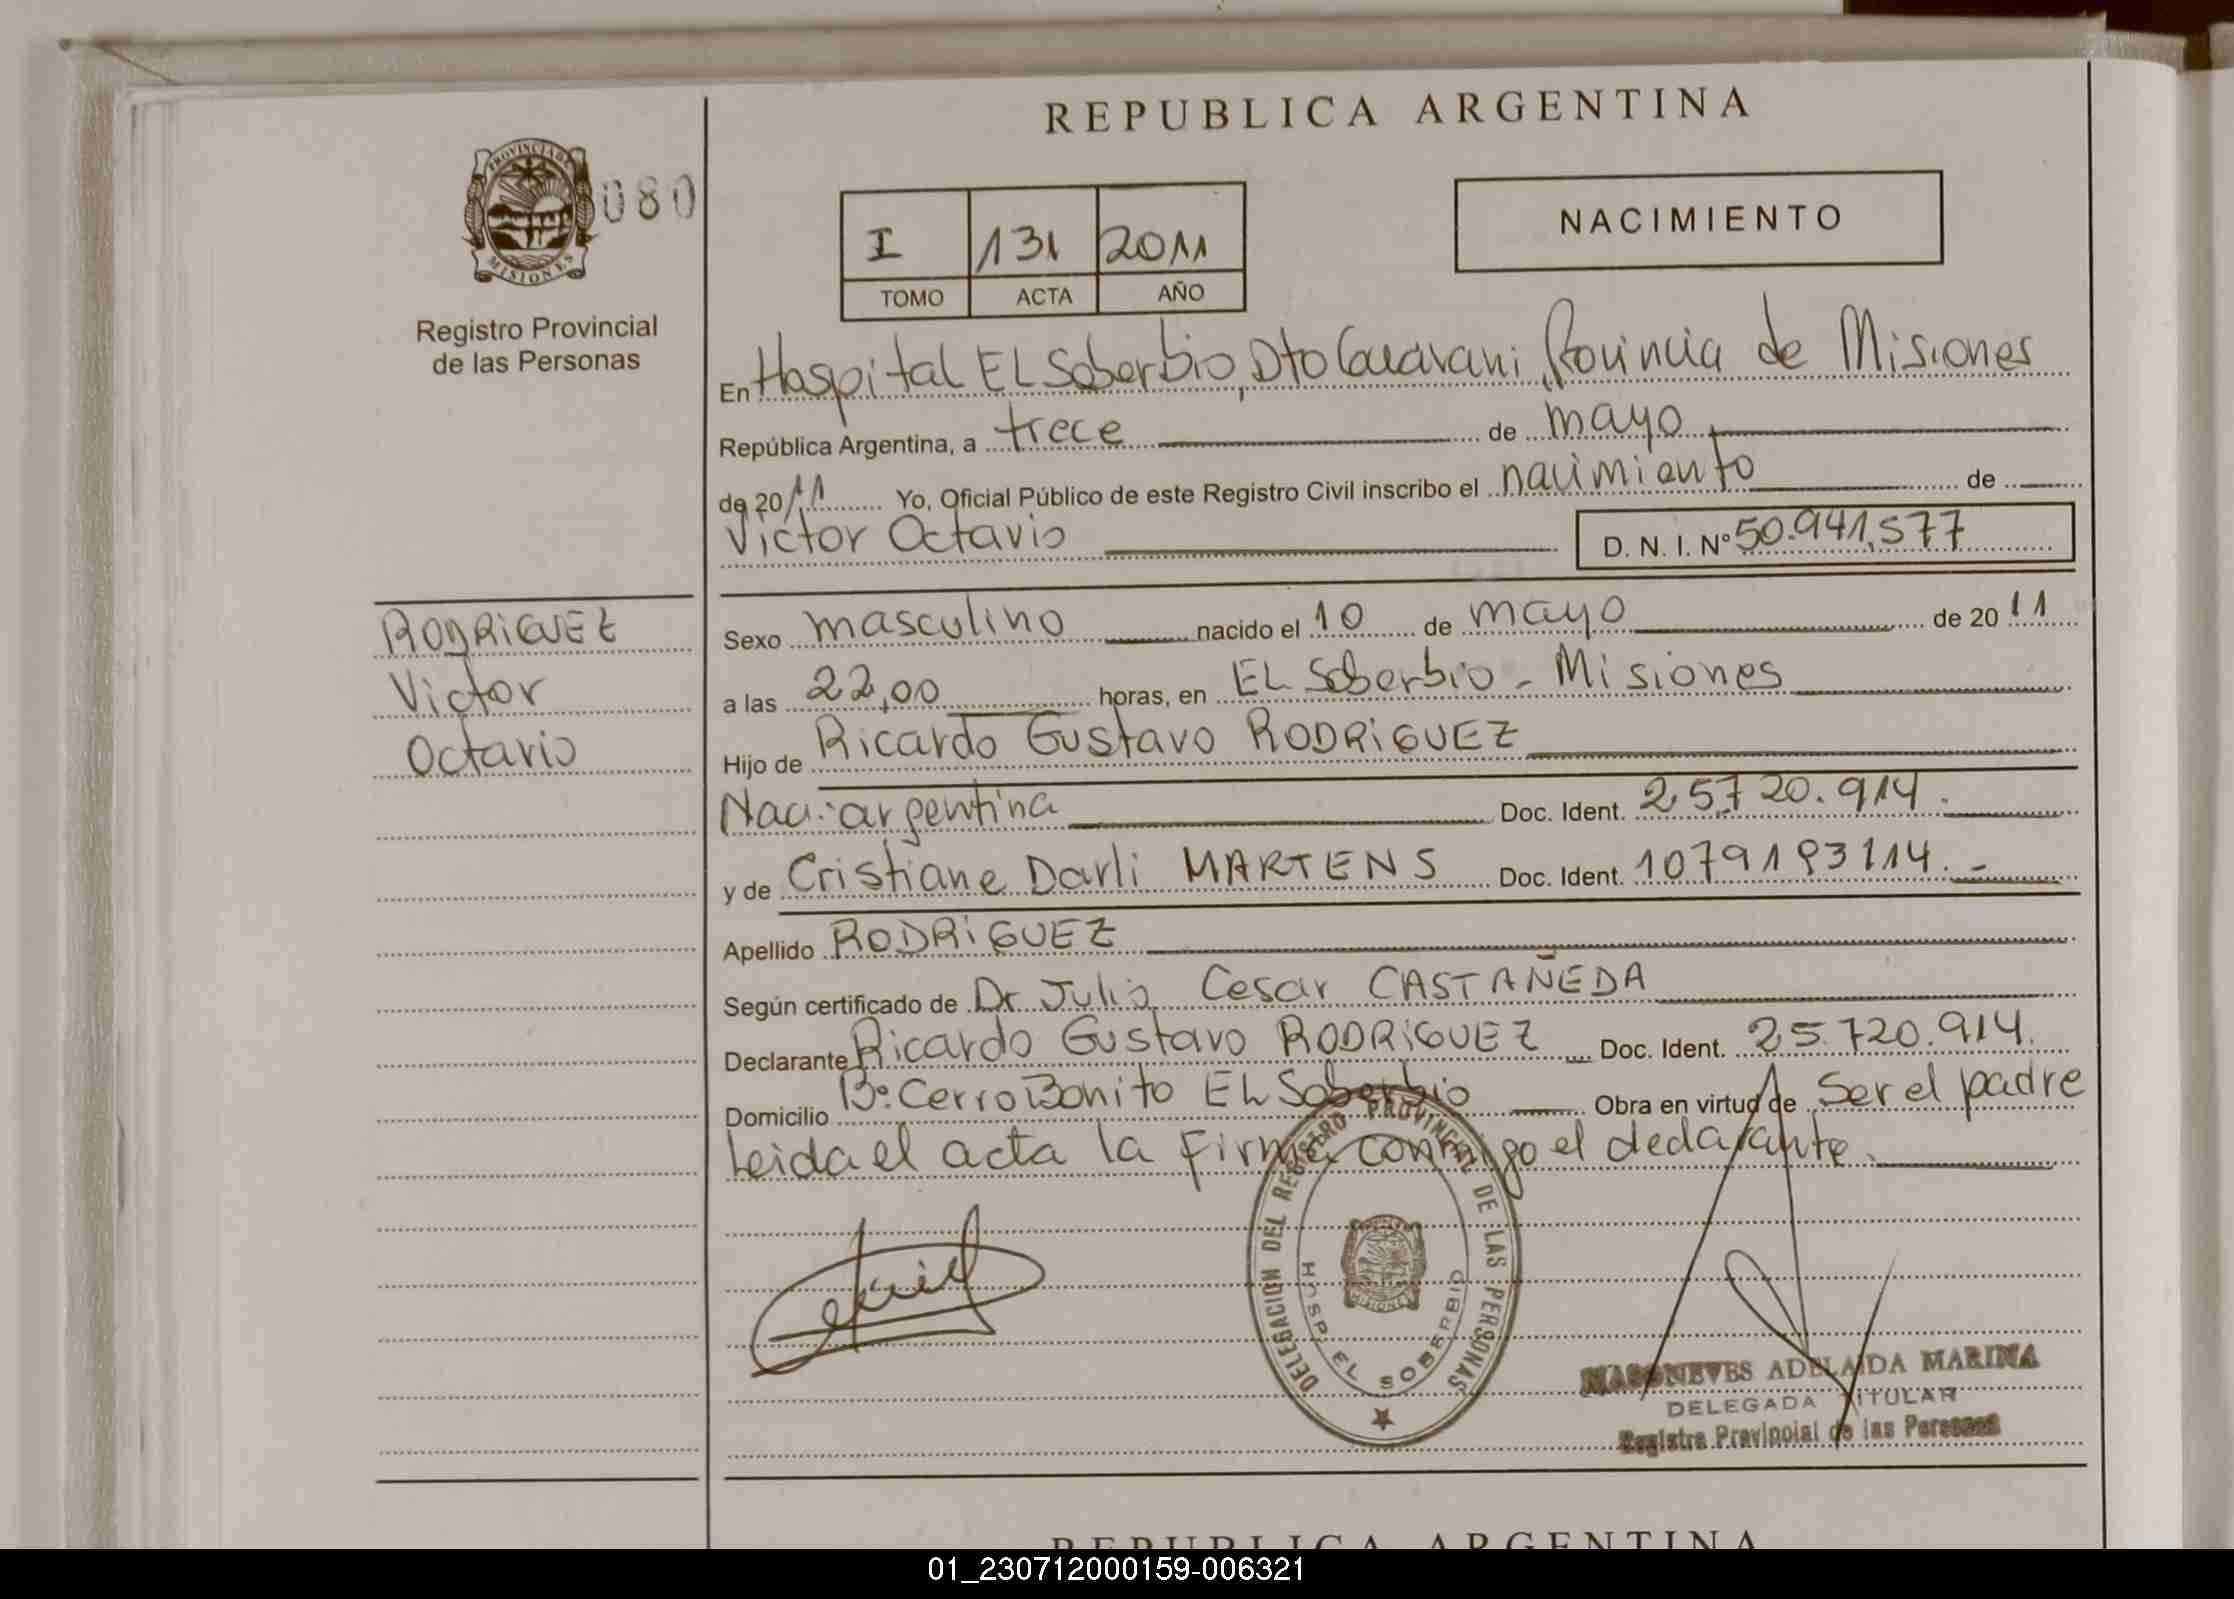 REPUBLICA ARGENTINA
PROVINCIA DE
MISIONES
080
Registro Provincial
de las Personas
I 131 2011
TOMO ACTA AÑO
NACIMIENTO
En Hospital EL Soberbio, Dto Guarani, Provincia de Misiones
República Argentina, a trece de mayo
de 2011 Yo, Oficial Público de este Registro Civil inscribo el nacimiento de
Victor Octavio D. N. I. Nº 50.941.577
RODRIGUEZ
Victor
Octavio
Sexo masculino nacido el 10 de mayo de 2011
a las 22,00 horas, en EL Soberbio - Misiones
Hijo de Ricardo Gustavo RODRIGUEZ
Nac: argentina Doc. Ident. 25.720.914.
y de Cristiane Darli MARTENS Doc. Ident. 1079193114.-
Apellido RODRIGUEZ
Según certificado de Dr. Julio Cesar CASTAÑEDA
Declarante Ricardo Gustavo RODRIGUEZ Doc. Ident. 25.720.914.
Domicilio Bº. Cerro Bonito EL Soberbio Obra en virtud de Ser el padre
Leida el acta la firma conmigo el declarante.
DELEGACION DEL REGISTRO PROVINCIAL DE LAS PERSONAS
HOSP. EL SOBERBIO
MISIONES
ADELAIDA MARINA
DELEGADA TITULAR
Registro Provincial de las Personas
REPUBLICA ARGENTINA
01_230712000159-006321